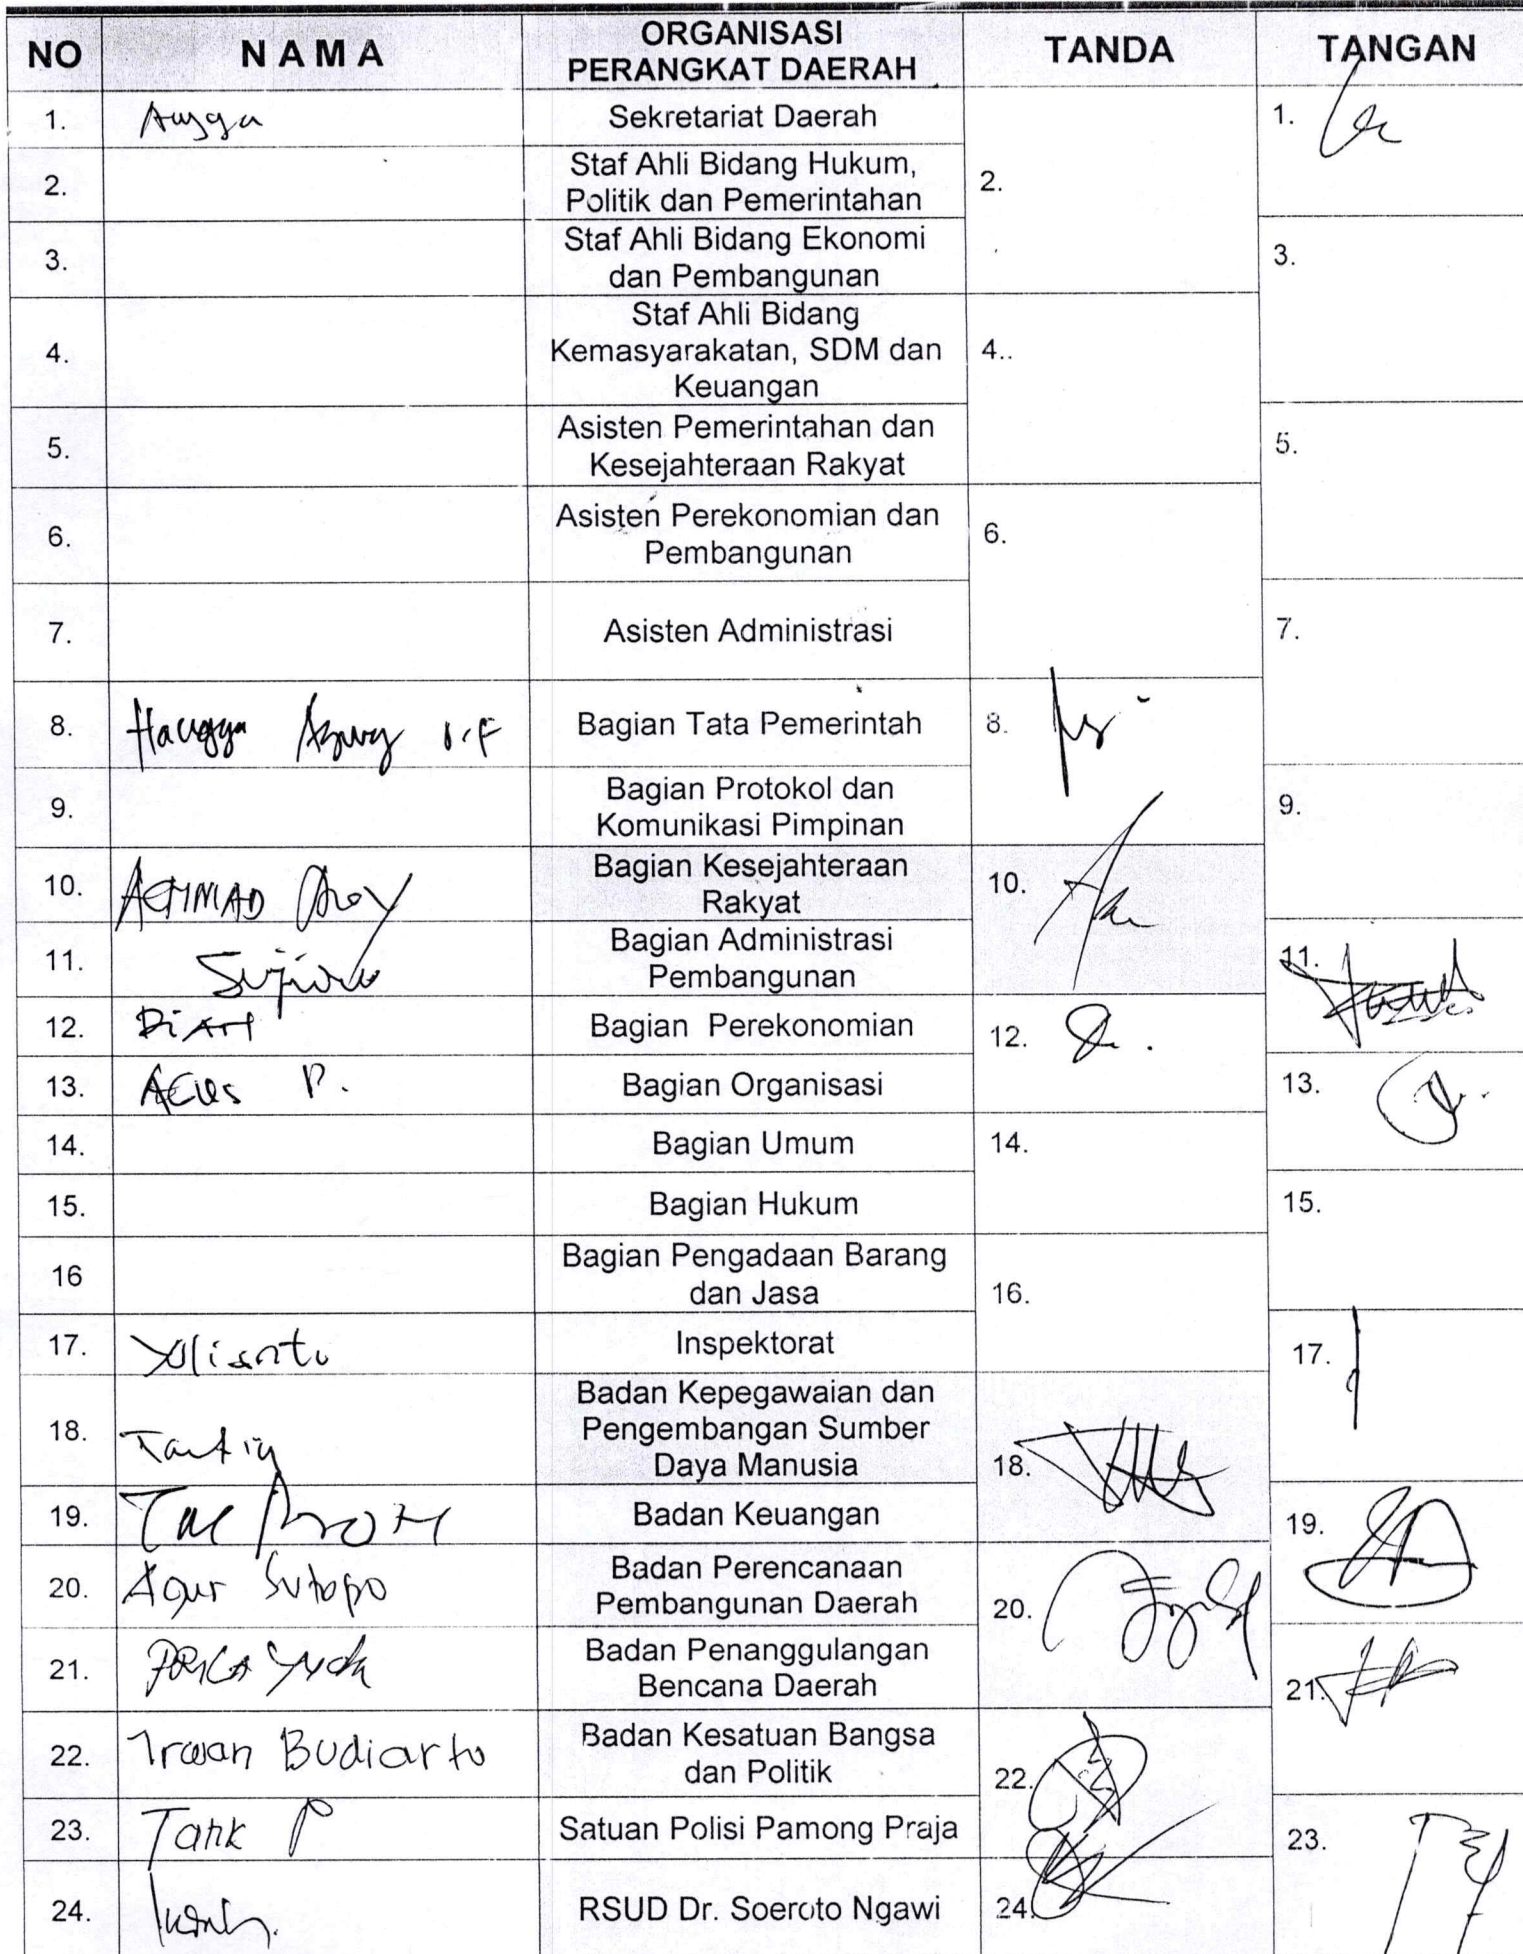 NO NAMA ORGANISASI PERANGKAT DAERAH TANDA TANGAN
1. Angga Sekretariat Daerah 1.
2. Staf Ahli Bidang Hukum,
Politik dan Pemerintahan 2.
3. Staf Ahli Bidang Ekonomi
dan Pembangunan 3.
4. Staf Ahli Bidang
Kemasyarakatan, SDM dan
Keuangan 4..
5. Asisten Pemerintahan dan
Kesejahteraan Rakyat 5.
6. Asisten Perekonomian dan
Pembangunan 6.
7. Asisten Administrasi 7.
8. Hangga Agung Bagian Tata Pemerintah 8.
9. Bagian Protokol dan
Komunikasi Pimpinan 9.
10. ACHMAD Bagian Kesejahteraan
Rakyat 10.
11. Bagian Administrasi
Pembangunan 11.
12. Bagian Perekonomian 12.
13. AGUS P. Bagian Organisasi 13.
14. Bagian Umum 14.
15. Bagian Hukum 15.
16 Bagian Pengadaan Barang
dan Jasa 16.
17. Yulianto Inspektorat 17.
18. Badan Kepegawaian dan
Pengembangan Sumber
Daya Manusia 18.
19. Badan Keuangan 19.
20. Agus Sutopo Badan Perencanaan
Pembangunan Daerah 20.
21. Badan Penanggulangan
Bencana Daerah 21.
22. Irawan Budiarto Badan Kesatuan Bangsa
dan Politik 22.
23. Tarik P Satuan Polisi Pamong Praja 23.
24. RSUD Dr. Soeroto Ngawi 24.